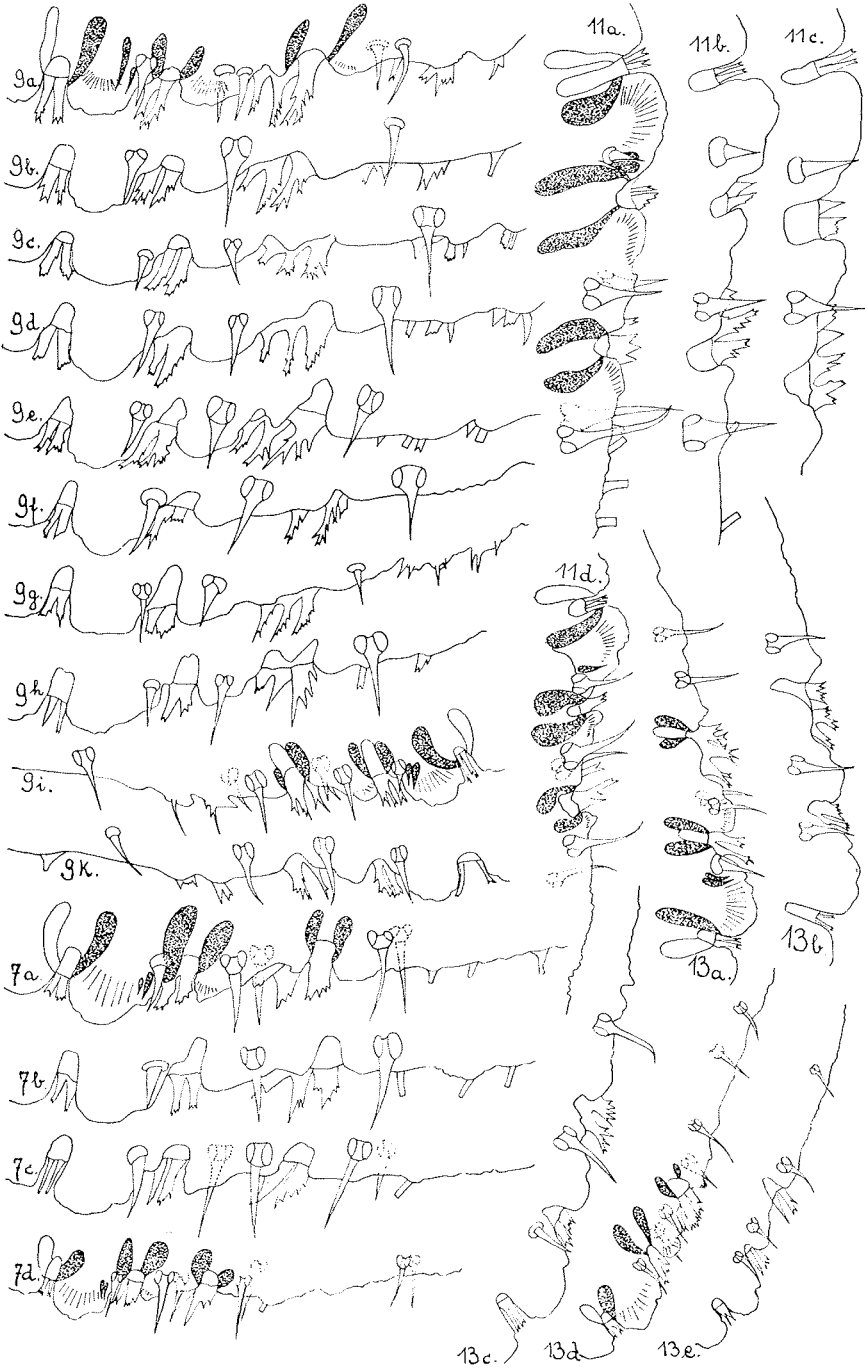 9a.
9b.
9c.
9d.
9e.
9f.
9g.
9h
9i.
9k.
7a.
7b.
7c.
7d.
11a.
11b.
11c.
11d.
13a.
13b
13c.
13d
13e.